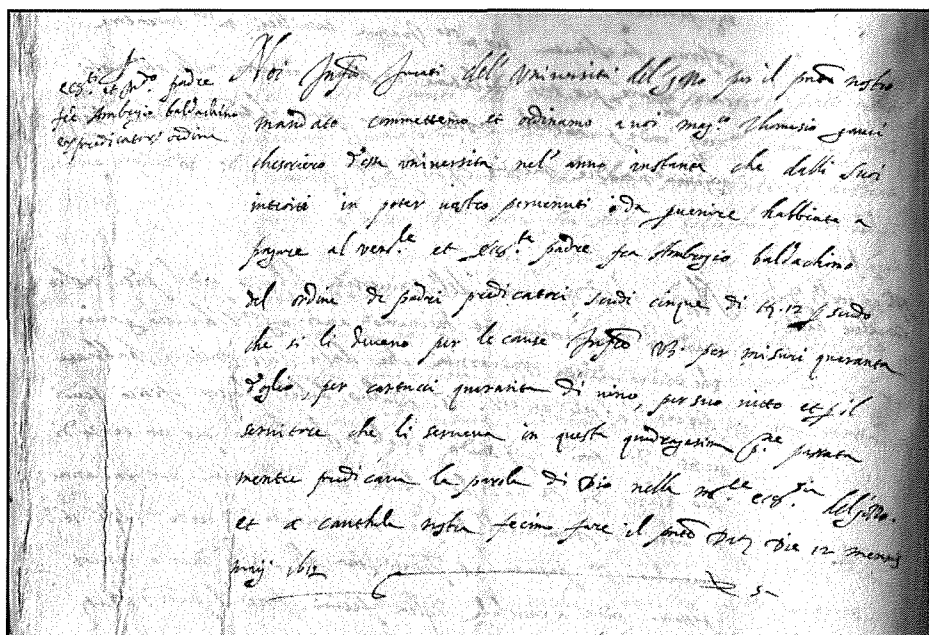 ecc.te et R.do padre
fra Ambrogio baldachino
ex predicatorj ordine
Noi Infr̃i Jurati dell'Università del gozzo per il prñte nostro
mandato commettemo et ordinamo a voi mag.co Thomasio gauci
thesoriero d'essa università nel' anno instante che dalli suoi
introiti in poter vostro pervenuti ò da pervenire habbiate a
pagare al ven.le et ecc.te padre fra Ambrogio baldachino
del ordine di padri predicatori, scudi cinque di tt. 12 p scudo
che si li devono per le cause Infr̃e Vz. per misuri quaranta
d'oglio, per cartucci quaranta di vino, per suo vitto et p il
servitore che li serveva in questa quadragesima passata
mentre predicava la parola di Dio nella ecc.sia del gozzo.
et a cauthela nostra fecimo fare il prñte Die 12 mensis
maij 1612 5